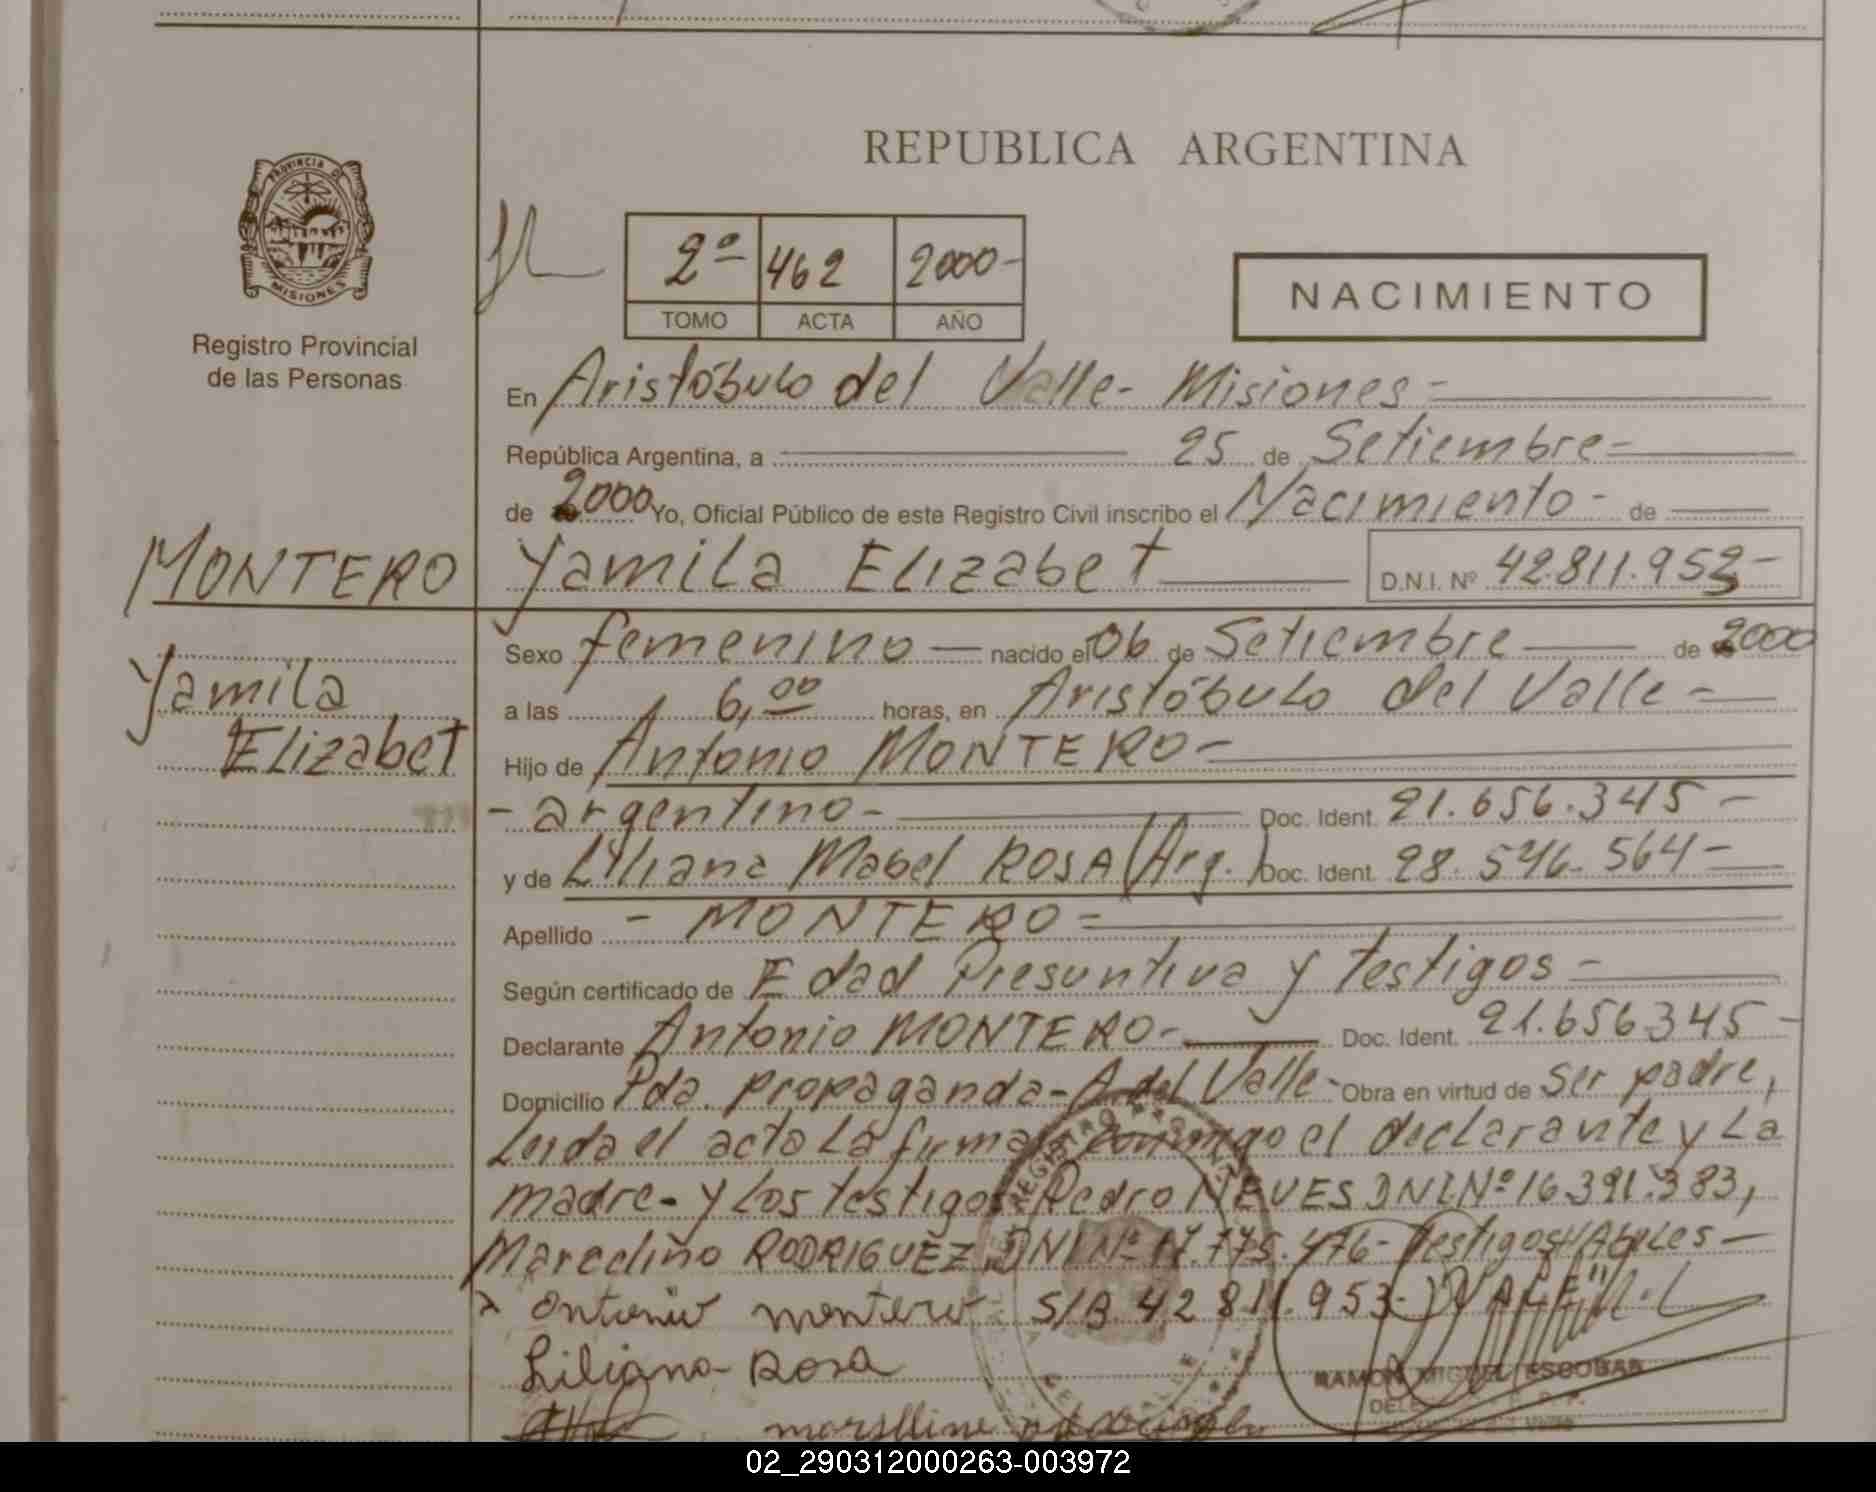 REPUBLICA ARGENTINA
PROVINCIA DE
MISIONES
Registro Provincial
de las Personas
2º 462 2000-
TOMO ACTA AÑO
NACIMIENTO
En Aristóbulo del Valle- Misiones-
República Argentina, a 25 de Setiembre-
de 2000 Yo, Oficial Público de este Registro Civil inscribo el Nacimiento- de
MONTERO Yamila Elizabet D.N.I. Nº 42.811.953-
Sexo femenino nacido el 06 de Setiembre de 2000
Yamila
a las 6,00 horas, en Aristóbulo del Valle-
Elizabet
Hijo de Antonio MONTERO-
- argentino- Doc. Ident. 21.656.345-
y de Liliana Mabel ROSA (Arg.) Doc. Ident. 28.546.564-
Apellido - MONTERO-
Según certificado de Edad Presuntiva y testigos-
Declarante Antonio MONTERO- Doc. Ident. 21.656.345-
Domicilio Pda. propaganda- A. del Valle- Obra en virtud de ser padre,
Leída el acta La firma conmigo el declarante y La
madre- y Los testigos Pedro NEVES DNI Nº 16.391.383,
Marcelino RODRIGUEZ DNI Nº 17.775.476- testigos Hábiles-
Antonio montero S/B. 42 811.953- "VALE"
Liliana Rosa
RAMON MIGUEL ESCOBAR
02_290312000263-003972